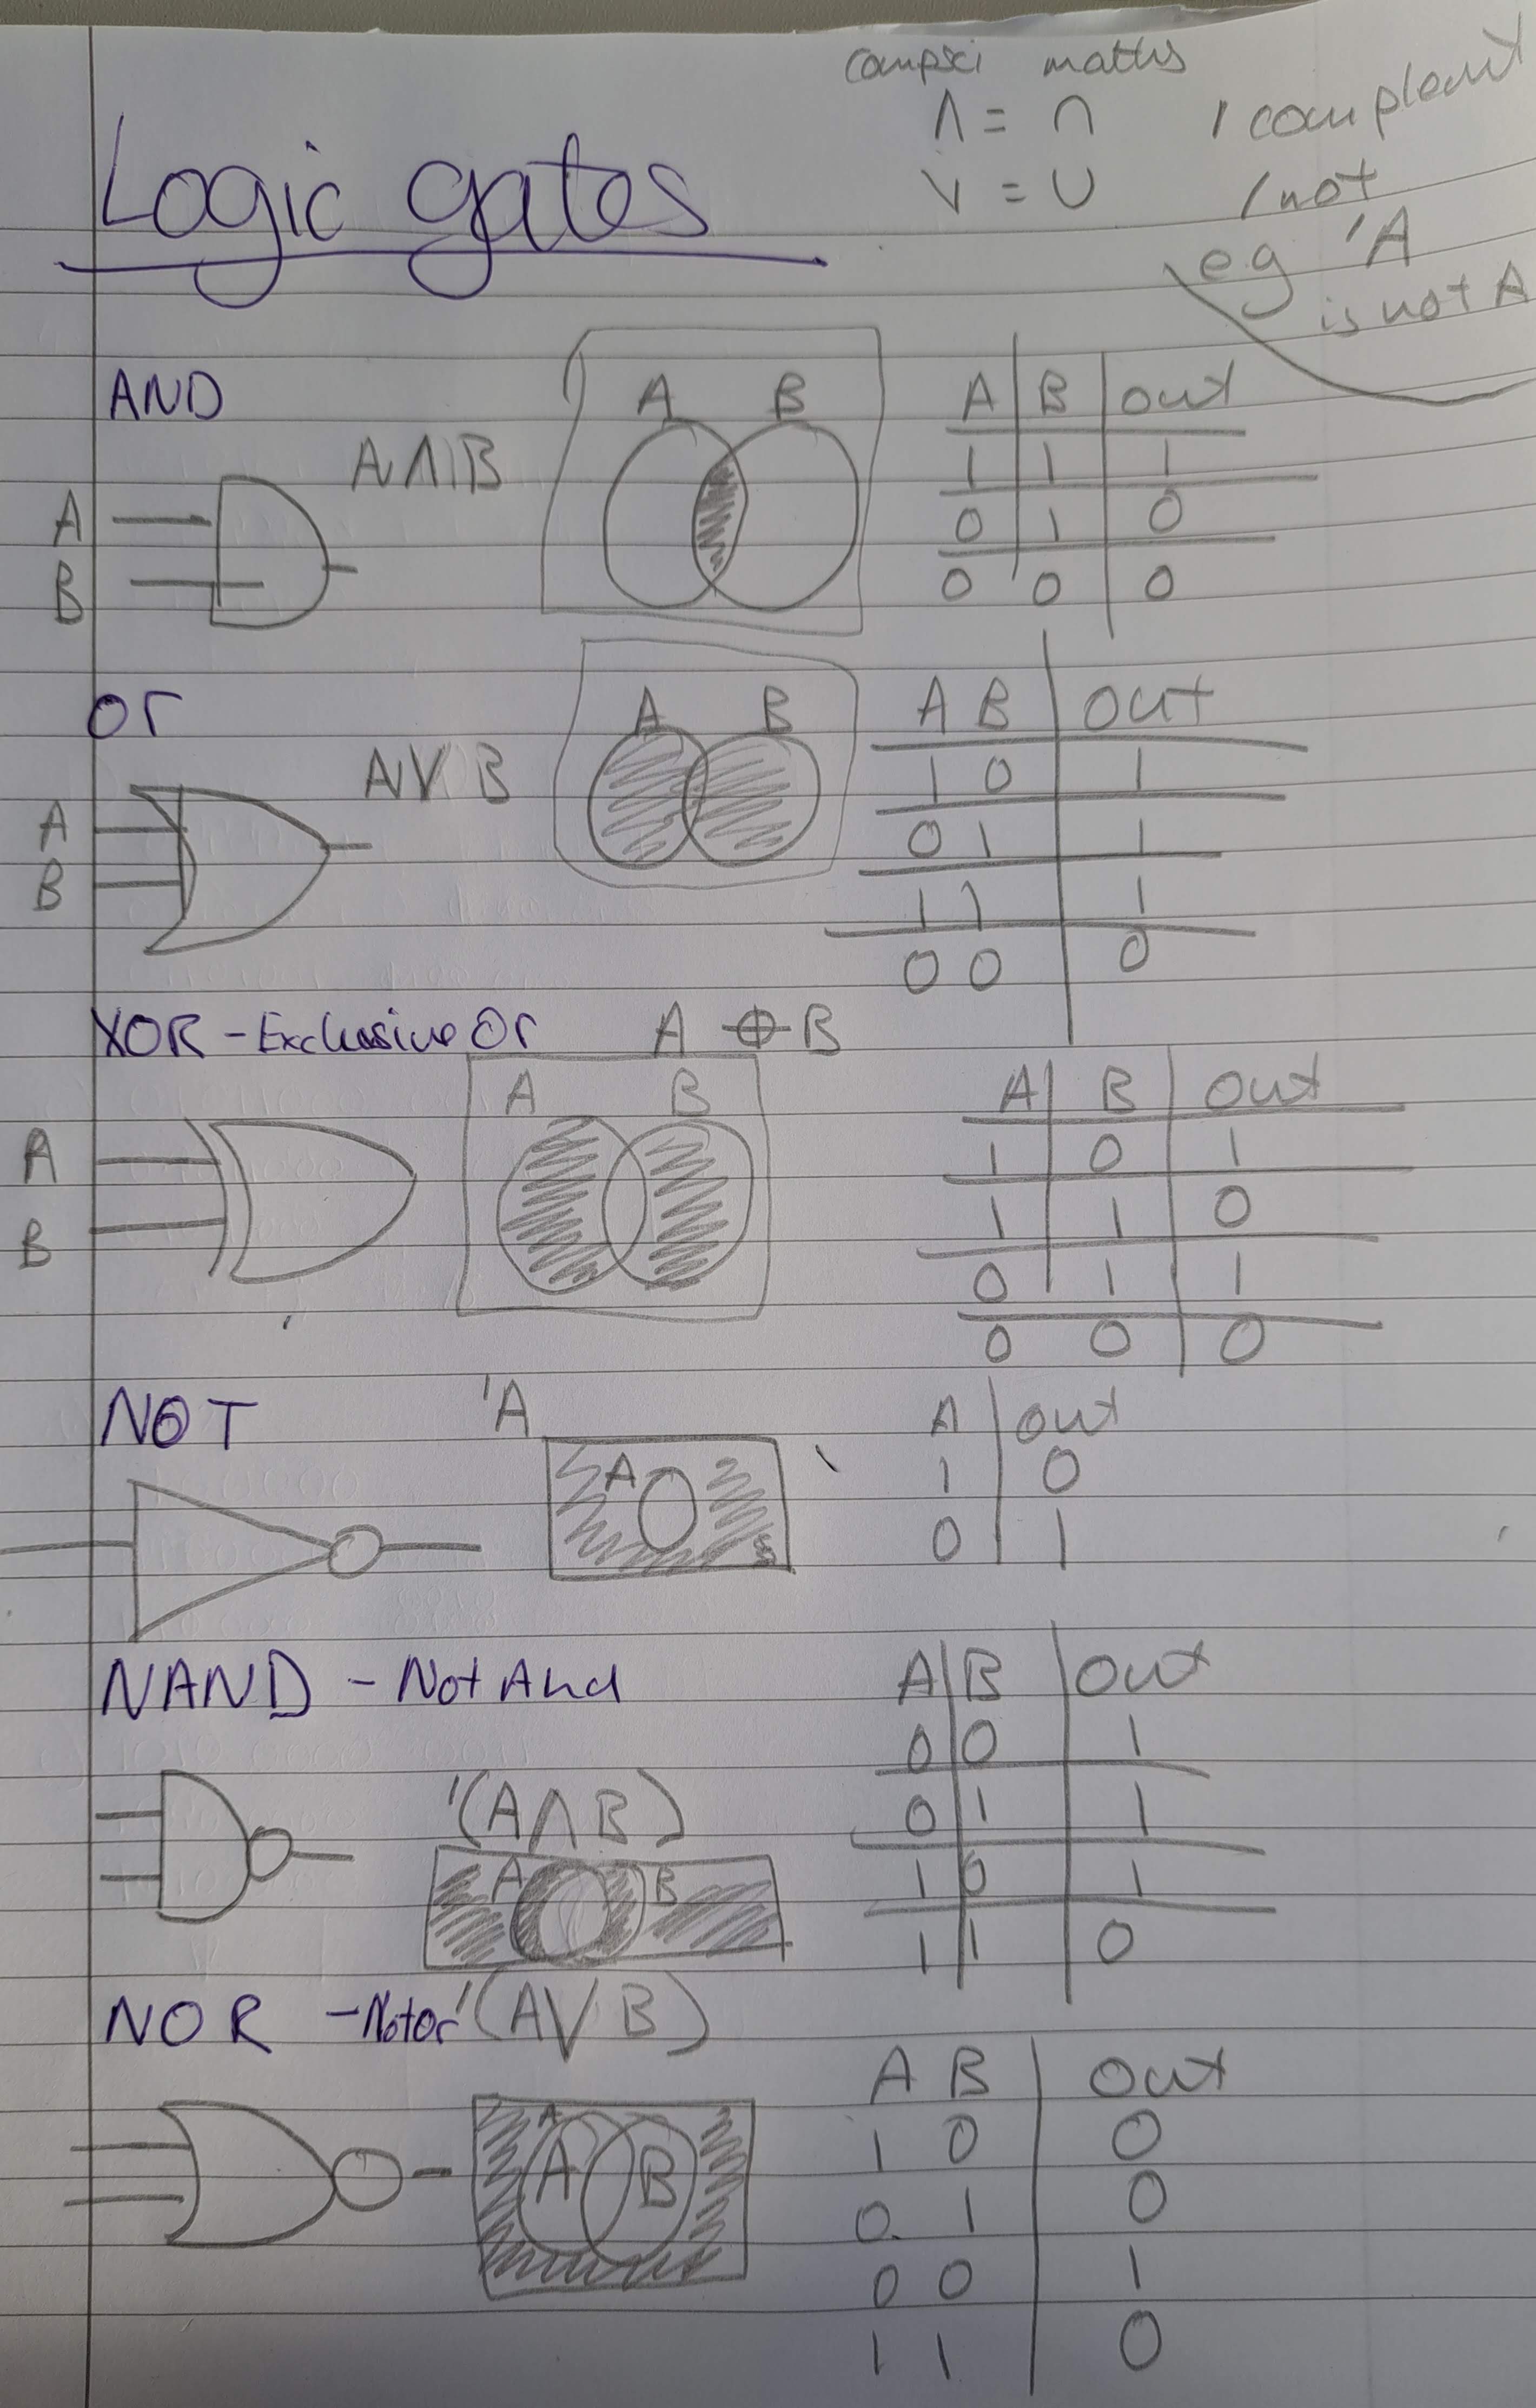 compsci maths
∧ = ∩ ' complement
∨ = ∪ ' not
eg 'A
is not A
Logic gates
AND
A ∧ B
A B
A B out
1 1 1
0 1 0
0 0 0
A
B
or
A ∨ B
A B
A B out
1 0 1
0 1 1
1 1 1
0 0 0
A
B
XOR - Exclusive Or A ⊕ B
A B
A B out
1 0 1
1 1 0
0 1 1
0 0 0
A
B
NOT 'A
A
A out
1 0
0 1
NAND - Not And
'(A ∧ B)
A B
A B out
0 0 1
0 1 1
1 0 1
1 1 0
NOR - Not or '(A ∨ B)
A
A B
A B out
1 0 0
0 1 0
0 0 1
1 1 0